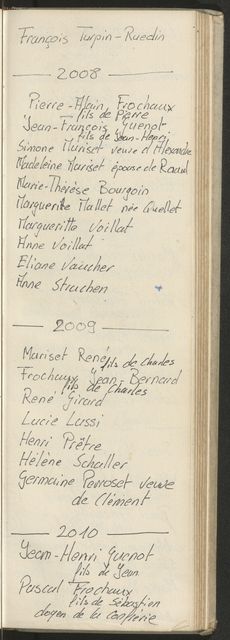 François Turpin-Ruedin
— 2008 —
Pierre-Alain Frochaux
fils de Pierre
Jean-François Quenot
fils de Jean-Henri
Simone Mariset veuve d'Alexandre
Madeleine Mariset épouse de Raoul
Marie-Thérèse Bourgoin
Marguerite Mallet née Quellet
Margueritte Voillat
Anne Voillat
Eliane Vaucher
Anne Strachen
— 2009 —
Mariset René fils de Charles
Frochaux Jean-Bernard
fils de Charles
René Girard
Lucie Lassi
Henri Prêtre
Hélène Schaller
Germaine Perroset veuve
de Clément
— 2010 —
Jean-Henri Quenot
fils de Jean
Pascal Frochaux
fils de Sébastien
doyen de la confrérie